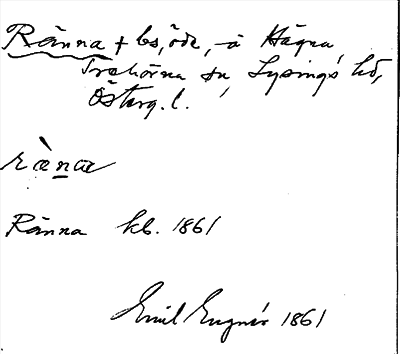 Ränna † bs, öde, å Hägna,
Trehörna sn, Lysings hd,
Österg. l.
ræ̀næ
Ränna kb. 1861
Emil Engnér 1861